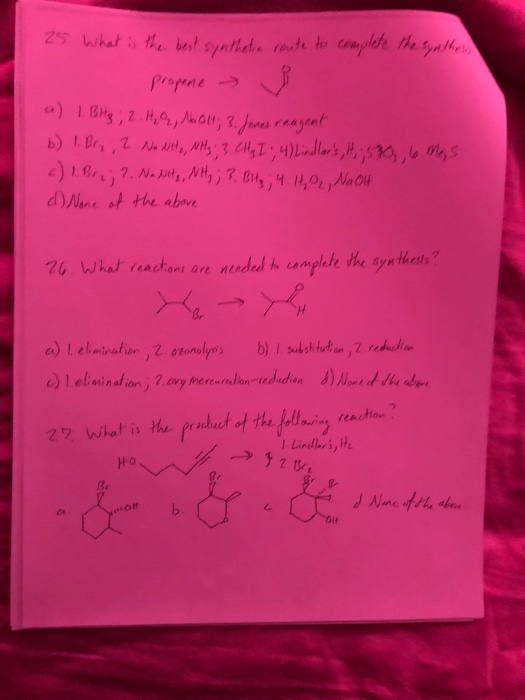 25 What is the best synthetic route to complete the synthesis
propene →
a) 1. BH3; 2. H2O2, NaOH; 3. Jones reagent
b) 1. Br2, 2. NaNH2, NH3; 3. CH3I; 4) Lindlar's, H2; 5) O3, 6 Me2S
c) 1. Br2; 2. NaNH2, NH3; 3. BH3; 4. H2O2, NaOH
d) None of the above
26. What reactions are needed to complete the synthesis?
Br → O H
a) 1. elimination; 2. ozonolysis b) 1. substitution, 2 reduction
c) 1. elimination; 2. oxymercuration-reduction d) None of the above
27. What is the product of the following reaction?
HO → 1. Lindlar's, H2
2. Br2
a. Br OH b. Br O c. Br Br OH d. None of the above